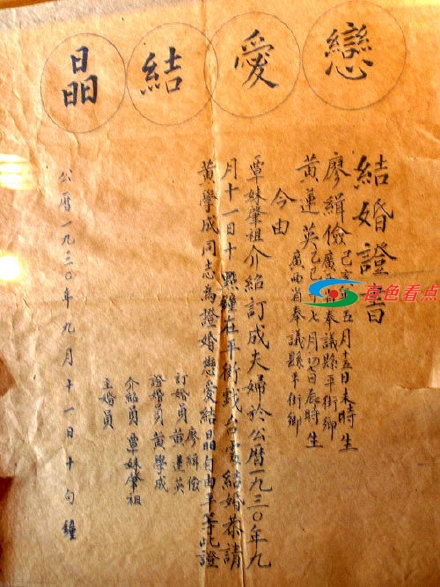 戀愛結晶
結婚證書
廖緝儉 己亥年五月十五日未時生
廣西省奉議縣平街鄉
黃蓮英 己巳年七月初 日辰時生
廣西省奉議縣平街鄉
今由
覃妹肇祖介紹訂成夫婦於公曆一九三〇年九
月十一日十點鐘在平街戲台處結婚恭請
黃學成同志為證婚戀愛結晶自由平等此證
訂婚員 廖緝儉
黃蓮英
證婚員 黃學成
介紹員 覃妹肇祖
主婚員
公曆一九三〇年九月十一日十句鐘
百色看点